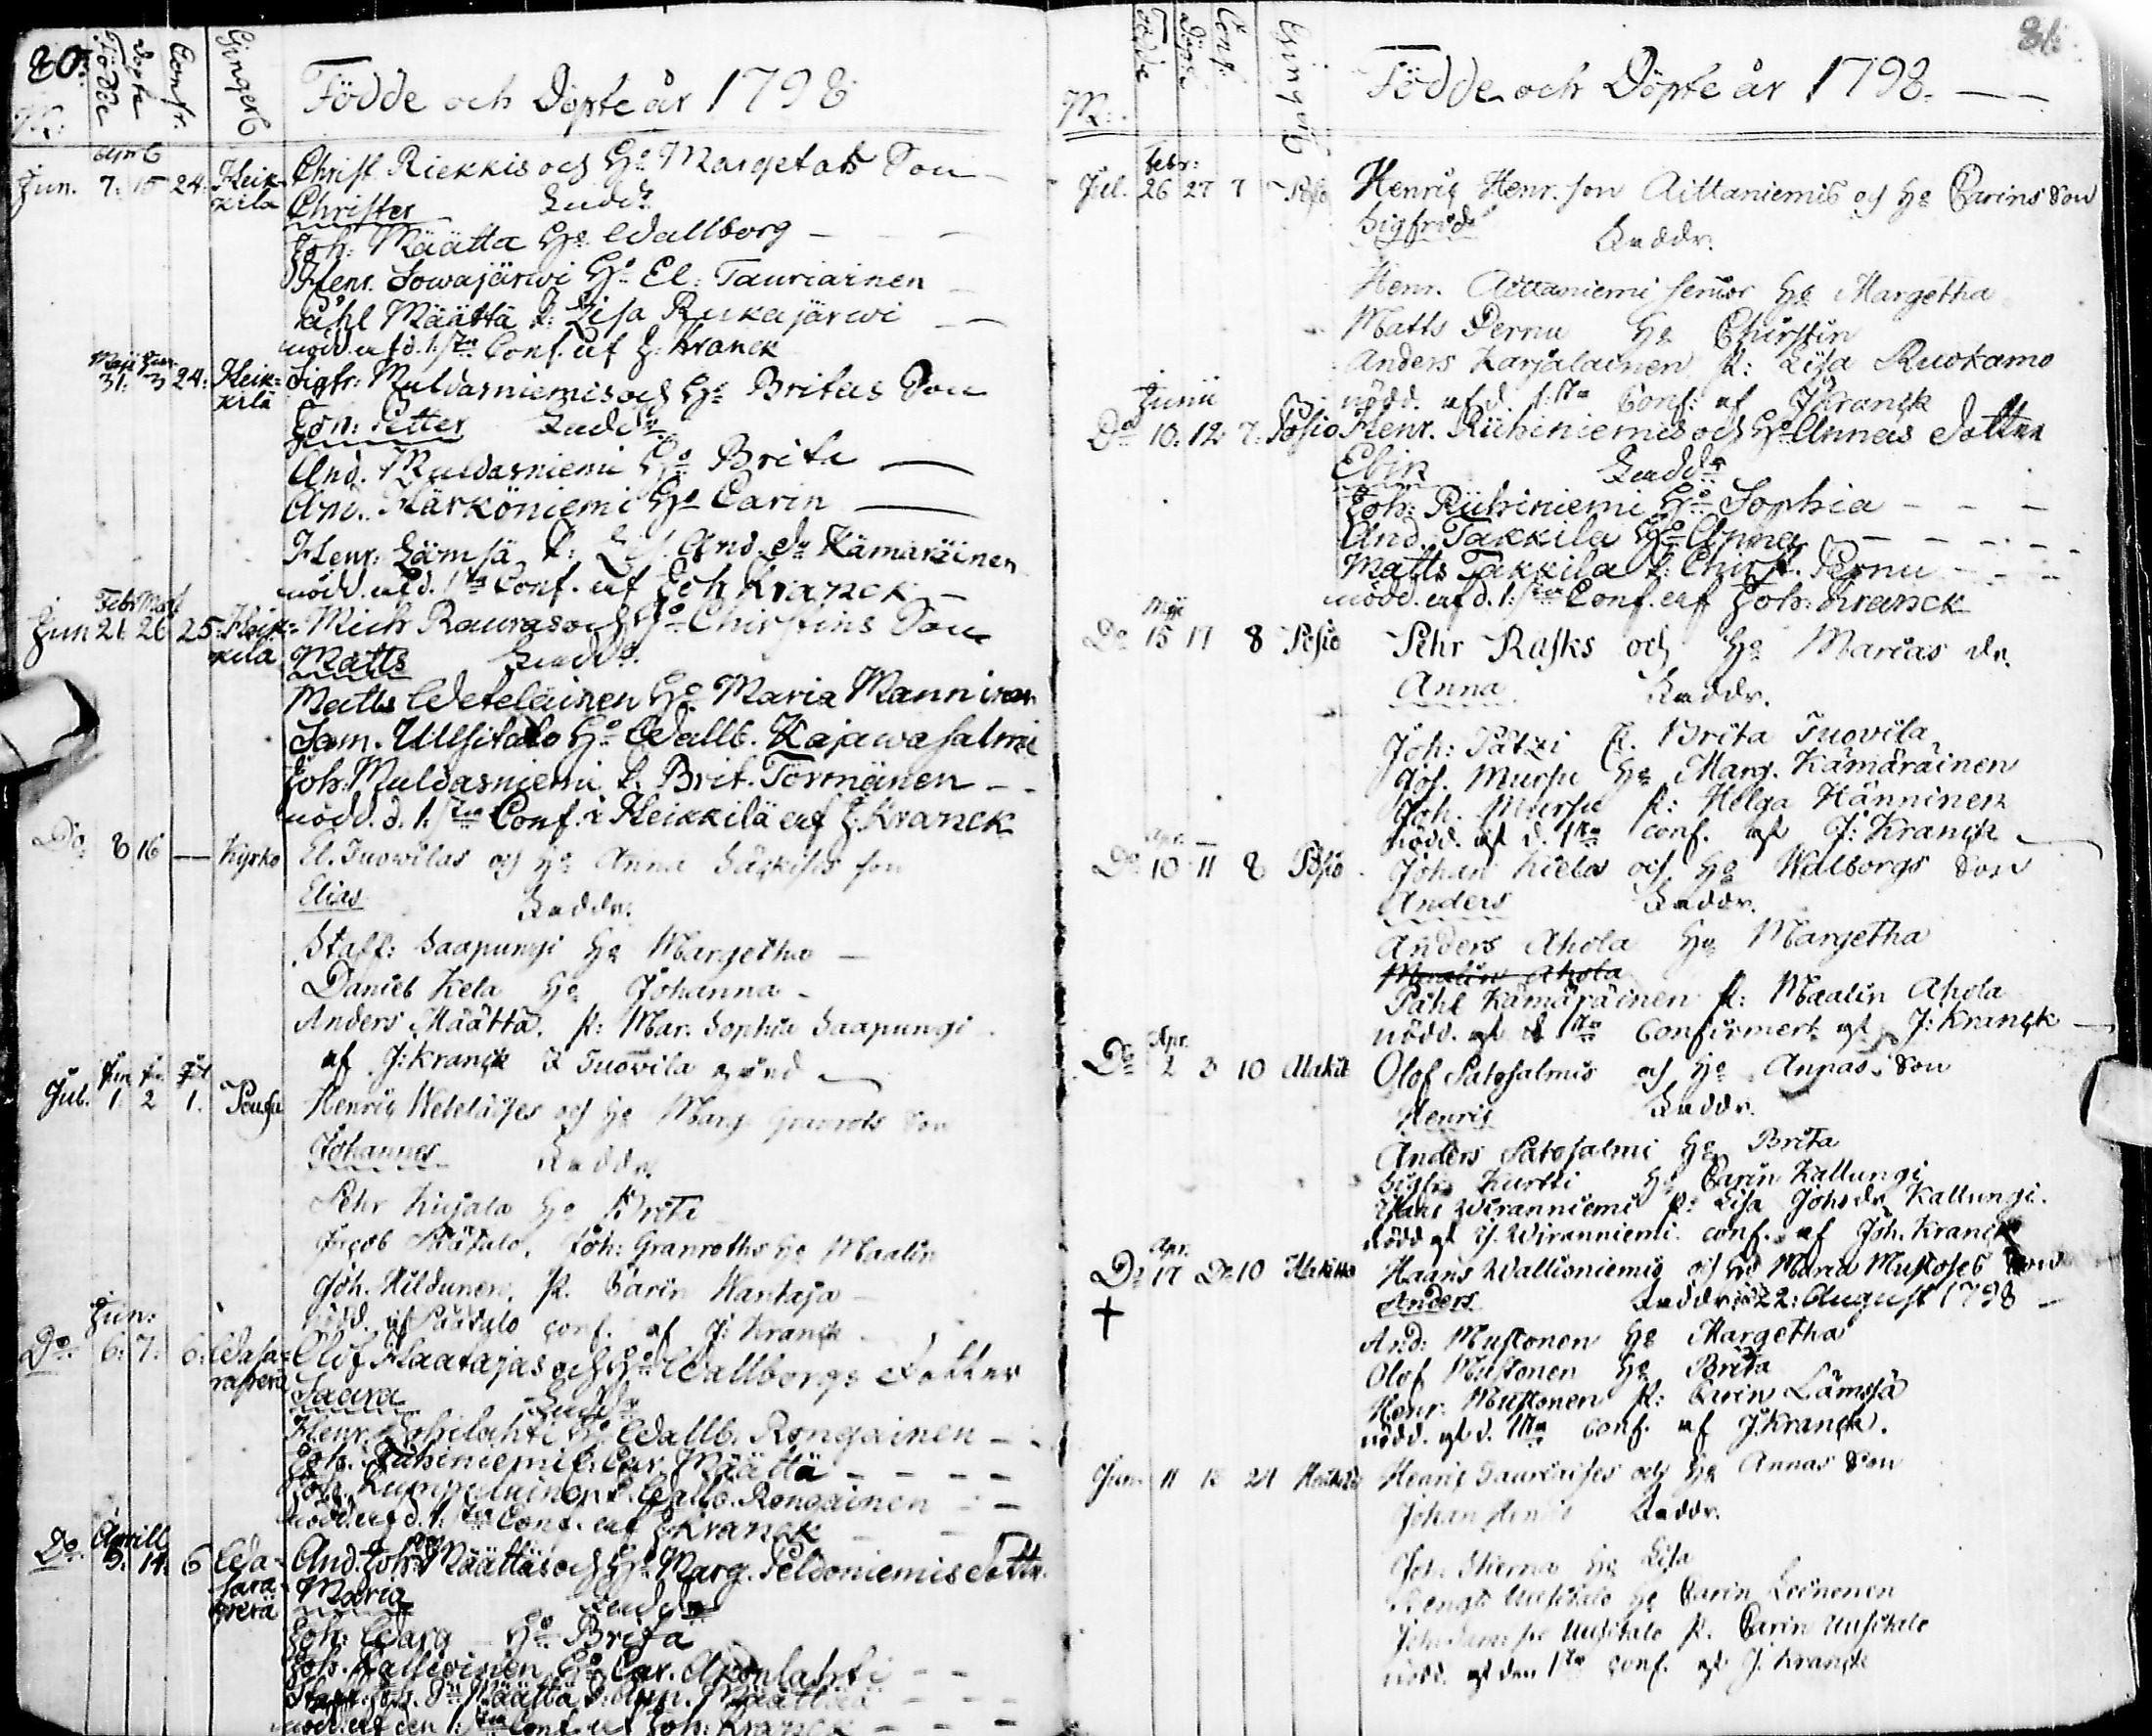 80.
Födde
Döpte
Confr.
Gingerb
M:
Födde och Döpte år 1798
Jun. 7. 15 24. Heik-
kilä
Christ. Riekkis och H:o Margetas Son
Christer Fadd:r
Joh: Määtta H:o Wallborg
Henr. Sowajärwi H:o El: Tauriainen
Påhl Määttä P: Lisa Rukajärwi
nödd. af d. 1:sta Conf. af J: Kranck
Maji Jun.
31. 3 24. Heik-
kilä
Sigfr: Muldasniemis och H:o Britas Son
Joh: Petter Fadd:r
And. Muldasniemi H:o Brita
And. Härköniemi H:o Carin
Henr. Lämsä P: And. d:r Kämäräinen
nödd. af d. 1:sta Conf. af Joh Kranck
Febr
Jun 21. 26 25. Heik-
kilä
Mich Rauras och H:o Chirstins Son
Matts Fadd:r
Matts Weteläinen H:o Maria Manninen
Sam. Uusitalo H:o Wallb. Kajawasalmi
Joh. Muldasniemi P. Brit. Törmänen
nödd. d. 1:sta Conf. i Heikkilä af J. Kranck
Do. 8 16 — Kyrko
El. Tuowilas och H:o Anna son
Elias Faddr:
Staff: Saapungi H:o Margetha
Daniel Kela H:o Johanna
Anders Määttä. P: Mar. Sophia Saapungi
af J: Kranck Tuovila
Jun. Jul
Jul. 1. 2 1. Pousu
Henric Weteläises och H:o Marg. Son
Johannes Faddr.
Pehr Kirjala H:o Brita
Jacob Päätalo. Joh: Granroths H:o Maalin
Joh. Hildunen. P. Carin Wantaja
nödd. af Päätalo conf. af J: Kranck
Jun:
Do. 6. 7. 6. Wasa-
raperä
Olof Haatajas och H:o Wallborgs dotter
Saara Fadd:r
Henr. H:o Wallb. Rongainen
Joh. P. Car. Määttä
Joh. P. Wallb. Rongainen
nödd. af d. 1:sta Conf. af J Kranck
Aprill
Do. 9. 14. 6 Wa-
sara-
perä
And. Joh:s Son Määttäs och H:o Marg. Peldoniemis dotter.
Maria Fadd:r
Joh: Warg H:o Brita
Joh. H:o Car.
Joh. Määttä P: Ann. Määttä
nödd. af den 1:sta Conf. af Joh: Kranck
81.
Födde
Döpte
Conf:
Gingerb
M:
Födde och Döpte år 1798.
Febr:
Jul. 26 27 7 Posio
Henric Henr. son Aittaniemis och H:o Carins Son
Sigfrid Faddr.
Henr. Aittaniemi senior H:o Margetha
Matts Pernu H:o Chirstin
Anders Karjalainen P: Lisa Ruokamo
nödd. af d 1:sta Conf: af J Kranck
Junii
Do 10. 12. 7. Posio
Henr. Riihiniemis och H:o Annas dotter
Elin Fadd:r
Joh: Riihiniemi H:o Sophia
And. Takkila H:o Anna
Matts Takkila P: Chirst. Pernu
nödd. af d. 1:sta Conf. af Joh: Kranck
Maji
Do 15 17 8 Posio
Pehr Rasks och H:o Marias dr.
Anna Faddr.
Joh: Pätzi P. Brita Tuovila
Joh. Mursu H:o Marg. Kämäräinen
Joh. Mursu P: Helga Hänninen
nödd. af d. 1sta conf. af J: Kranck
Apr.
Do 10 11 8 Posio
Johan Kielas och H:o Walborgs Son
Anders Faddr.
Anders Ahola H:o Margetha
Maalin Ahola
Påhl Kämäräinen P: Maalin Ahola
nödd. af d 1sta Confirmert af J: Kranck
Apr.
Do 2 3 10 Alakit
Olof Patosalmis och H:o Annas Son
Henric Faddr.
Anders Patosalmi H:o Brita
Sigfr. Kurtti H:o Carin Kallungi
Wiranniemi P: Lisa Johsdr Kallungi.
nödd af J. Wiranniemi. conf. af Joh. Kranck
Apr.
Do 17 Do 10 Alakitka
†
Haans Wallioniemis och H:o Maria Mustoses Son
Anders Faddr. 22: August 1798
And: Mustonen H:o Margetha
Olof Mustonen H:o Brita
Henr: Mustonen P: Carin Lämsä
nödd. af d. 1sta conf. af J. Kranck.
Jun. 11 24 Heikkilä
Henric Tauriaises och H:o Annas Son
Johan Faddr.
Joh. Stierna H:o Lisa
Bengt Uusitalo H:o Carin Leinonen
Joh. Uusitalo P. Carin Uusitalo
nödd. af den 1sta conf. af J. Kranck